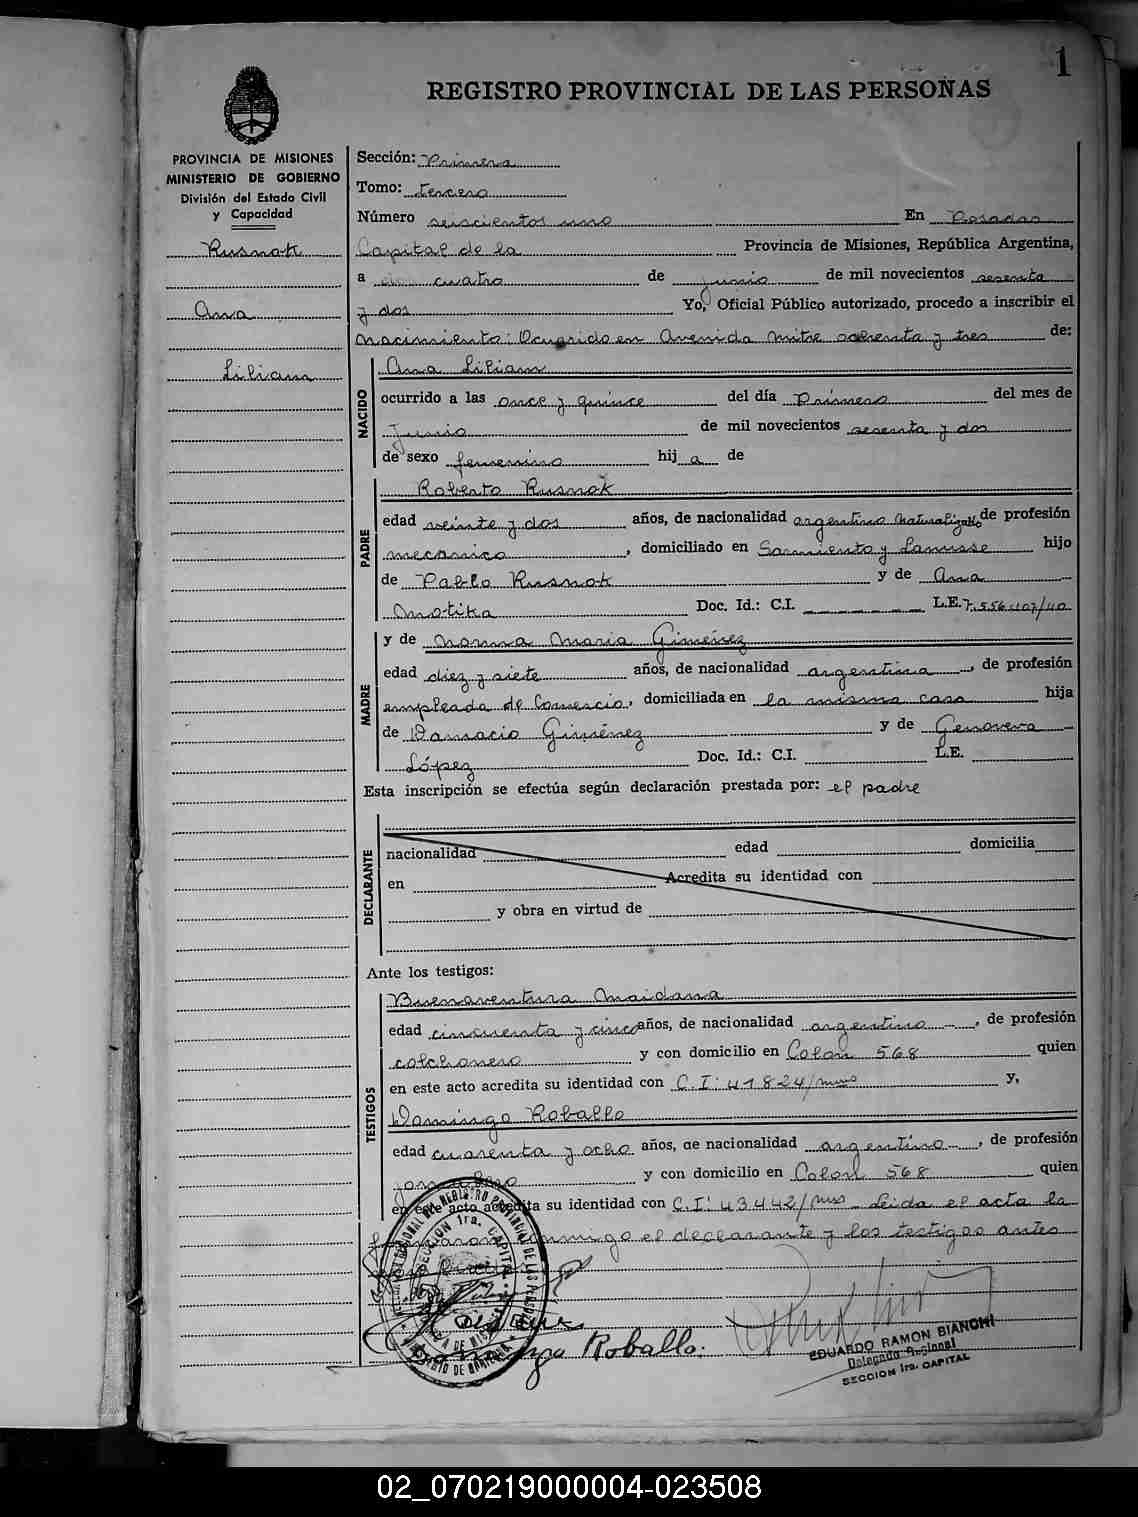 1
REGISTRO PROVINCIAL DE LAS PERSONAS
PROVINCIA DE MISIONES
MINISTERIO DE GOBIERNO
División del Estado Civil
y Capacidad
Rusnak
Ana
Liliana
Sección: Primera
Tomo: tercero
Número seiscientos uno En Posadas
Capital de la Provincia de Misiones, República Argentina,
a cuatro de junio de mil novecientos sesenta
y dos Yo, Oficial Público autorizado, procedo a inscribir el
nacimiento: Ocurrido en Avenida Mitre ochenta y tres de:
NACIDO
Ana Liliana
ocurrido a las once y quince del día Primero del mes de
junio de mil novecientos sesenta y dos
de sexo femenino hij a de
PADRE
Roberto Rusnak
edad veinte y dos años, de nacionalidad argentino naturalizado de profesión
mecanico, domiciliado en Sarmiento y Lanusse hijo
de Pablo Rusnak y de Ana
Motika Doc. Id.: C.I. L.E. 7.556.407/40
MADRE
y de Norma Maria Giménez
edad diez y siete años, de nacionalidad argentina, de profesión
empleada de Comercio, domiciliada en la misma casa hija
de Damacio Giménez y de Genoveva
López Doc. Id.: C.I. L.E.
Esta inscripción se efectúa según declaración prestada por: el padre
DECLARANTE
nacionalidad edad domicilia
en Acredita su identidad con
y obra en virtud de
Ante los testigos:
TESTIGOS
Buenaventura Maidana
edad cincuenta y cinco años, de nacionalidad argentino, de profesión
colchonero y con domicilio en Colon 568 quien
en este acto acredita su identidad con C.I: 41824/mnes y,
Domingo Roballo
edad cuarenta y ocho años, de nacionalidad argentino, de profesión
y con domicilio en Colon 568 quien
en este acto acredita su identidad con C.I: 43442/mns Leida el acta la
conmigo el declarante y los testigos antes
Roballo.
EDUARDO RAMON BIANCHI
Delegado Regional
SECCION 1ra. CAPITAL
02_070219000004-023508